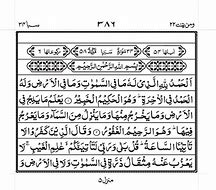 ومن يقنت ٢٢ ٣٨٦ سبا ٣٤
بِسْمِ اللهِ الرَّحْمٰنِ الرَّحِيْمِ
اَلْحَمْدُ لِلّٰهِ الَّذِيْ لَهٗ مَا فِي السَّمٰوٰتِ وَمَا فِي الْاَرْضِ وَلَهُ
الْحَمْدُ فِي الْاٰخِرَةِ ؕ وَهُوَ الْحَكِيْمُ الْخَبِيْرُ ۝ يَعْلَمُ مَا يَلِجُ فِي
الْاَرْضِ وَمَا يَخْرُجُ مِنْهَا وَمَا يَنْزِلُ مِنَ السَّمَآءِ وَمَا يَعْرُجُ
فِيْهَا ؕ وَهُوَ الرَّحِيْمُ الْغَفُوْرُ ۝ وَقَالَ الَّذِيْنَ كَفَرُوْا لَا
تَاْتِيْنَا السَّاعَةُ ؕ قُلْ بَلٰى وَرَبِّيْ لَتَاْتِيَنَّكُمْ ۙ عٰلِمِ الْغَيْبِ ۚ لَا
يَعْزُبُ عَنْهُ مِثْقَالُ ذَرَّةٍ فِي السَّمٰوٰتِ وَلَا فِي الْاَرْضِ وَلَاۤ
منزل ۵